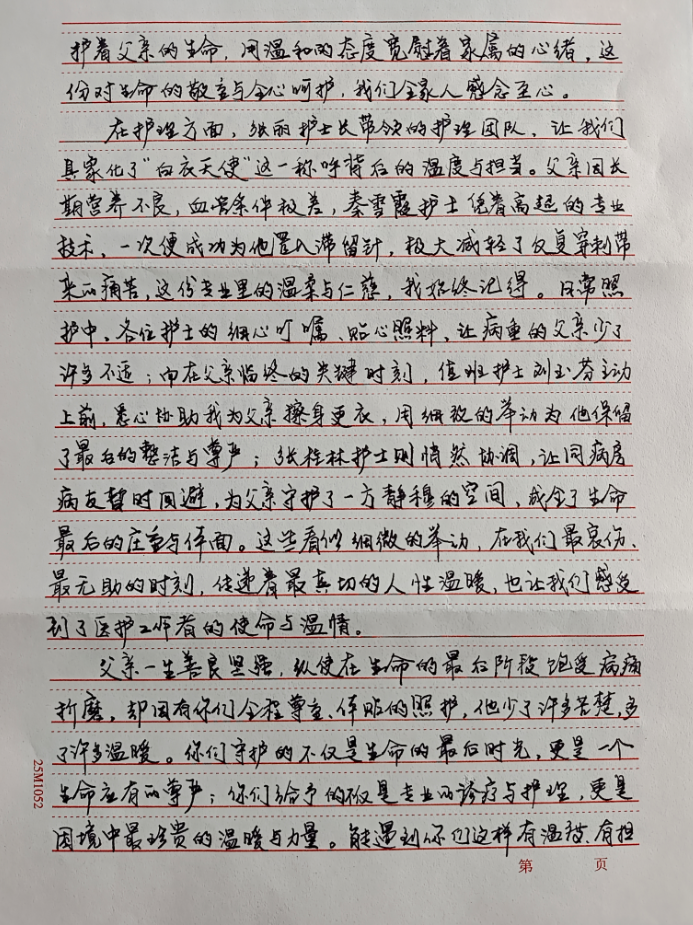 护着父亲的生命,用温和的态度宽慰着家属的心绪,这
份对生命的敬重与全心呵护,我们全家人感念至心。
在护理方面,张丽护士长带领的护理团队,让我们
具象化了“白衣天使”这一称呼背后的温度与担当。父亲因长
期营养不良,血管条件极差,秦雪霞护士凭着高超的专业
技术,一次便成功为他置入滞留针,极大减轻了反复穿刺带
来的痛苦,这份专业里的温柔与仁慈,我始终记得。日常照
护中,各位护士的细心叮嘱、贴心照料,让病重的父亲少了
许多不适;而在父亲临终的关键时刻,值班护士刘玉芬主动
上前,悉心协助我为父亲擦身更衣,用细致的举动为他保留
了最后的整洁与尊严;张桂林护士则悄然协调,让同病房
病友暂时回避,为父亲守护了一方静穆的空间,成全了生命
最后的庄重与体面。这些看似细微的举动,在我们最哀伤、
最无助的时刻,传递着最真切的人性温暖,也让我们感受
到了医护工作者的使命与温情。
父亲一生善良坚强,纵使在生命的最后阶段饱受病痛
折磨,却因有你们全程尊重、体贴的照护,他少了许多苦楚,多
了许多温暖。你们守护的不仅是生命的最后时光,更是一个
生命应有的尊严;你们给予的不仅是专业的诊疗与护理,更是
困境中最珍贵的温暖与力量。能遇到你们这样有温度、有担
第 页
25M1052